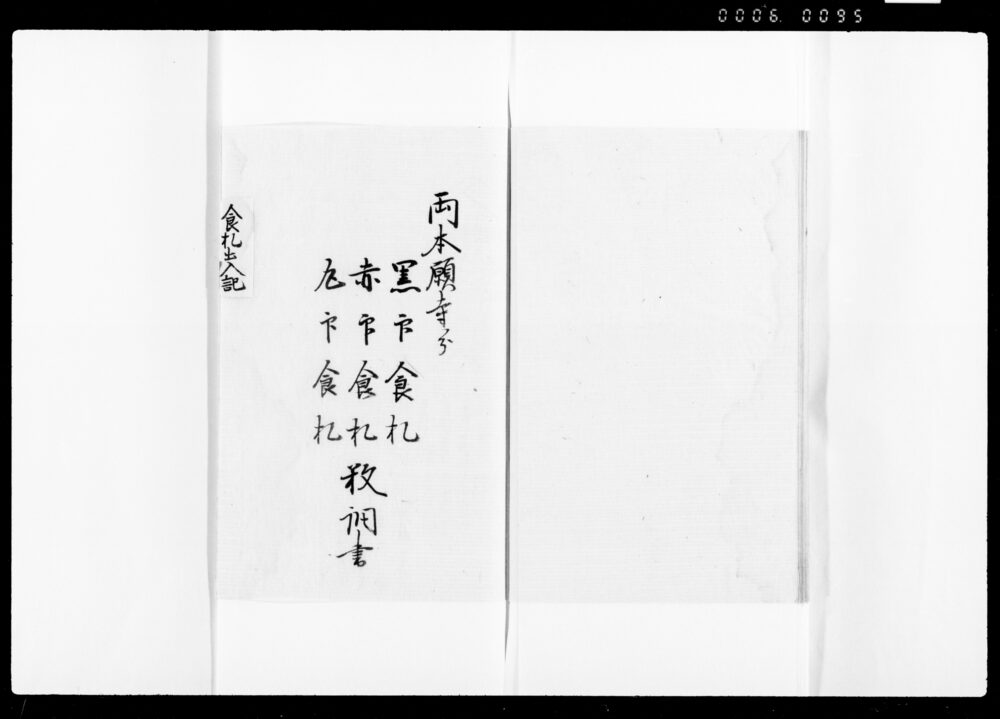 0006 0095
両本願寺分
黒印食札
赤印食札
印食札
数調書
食札出入記